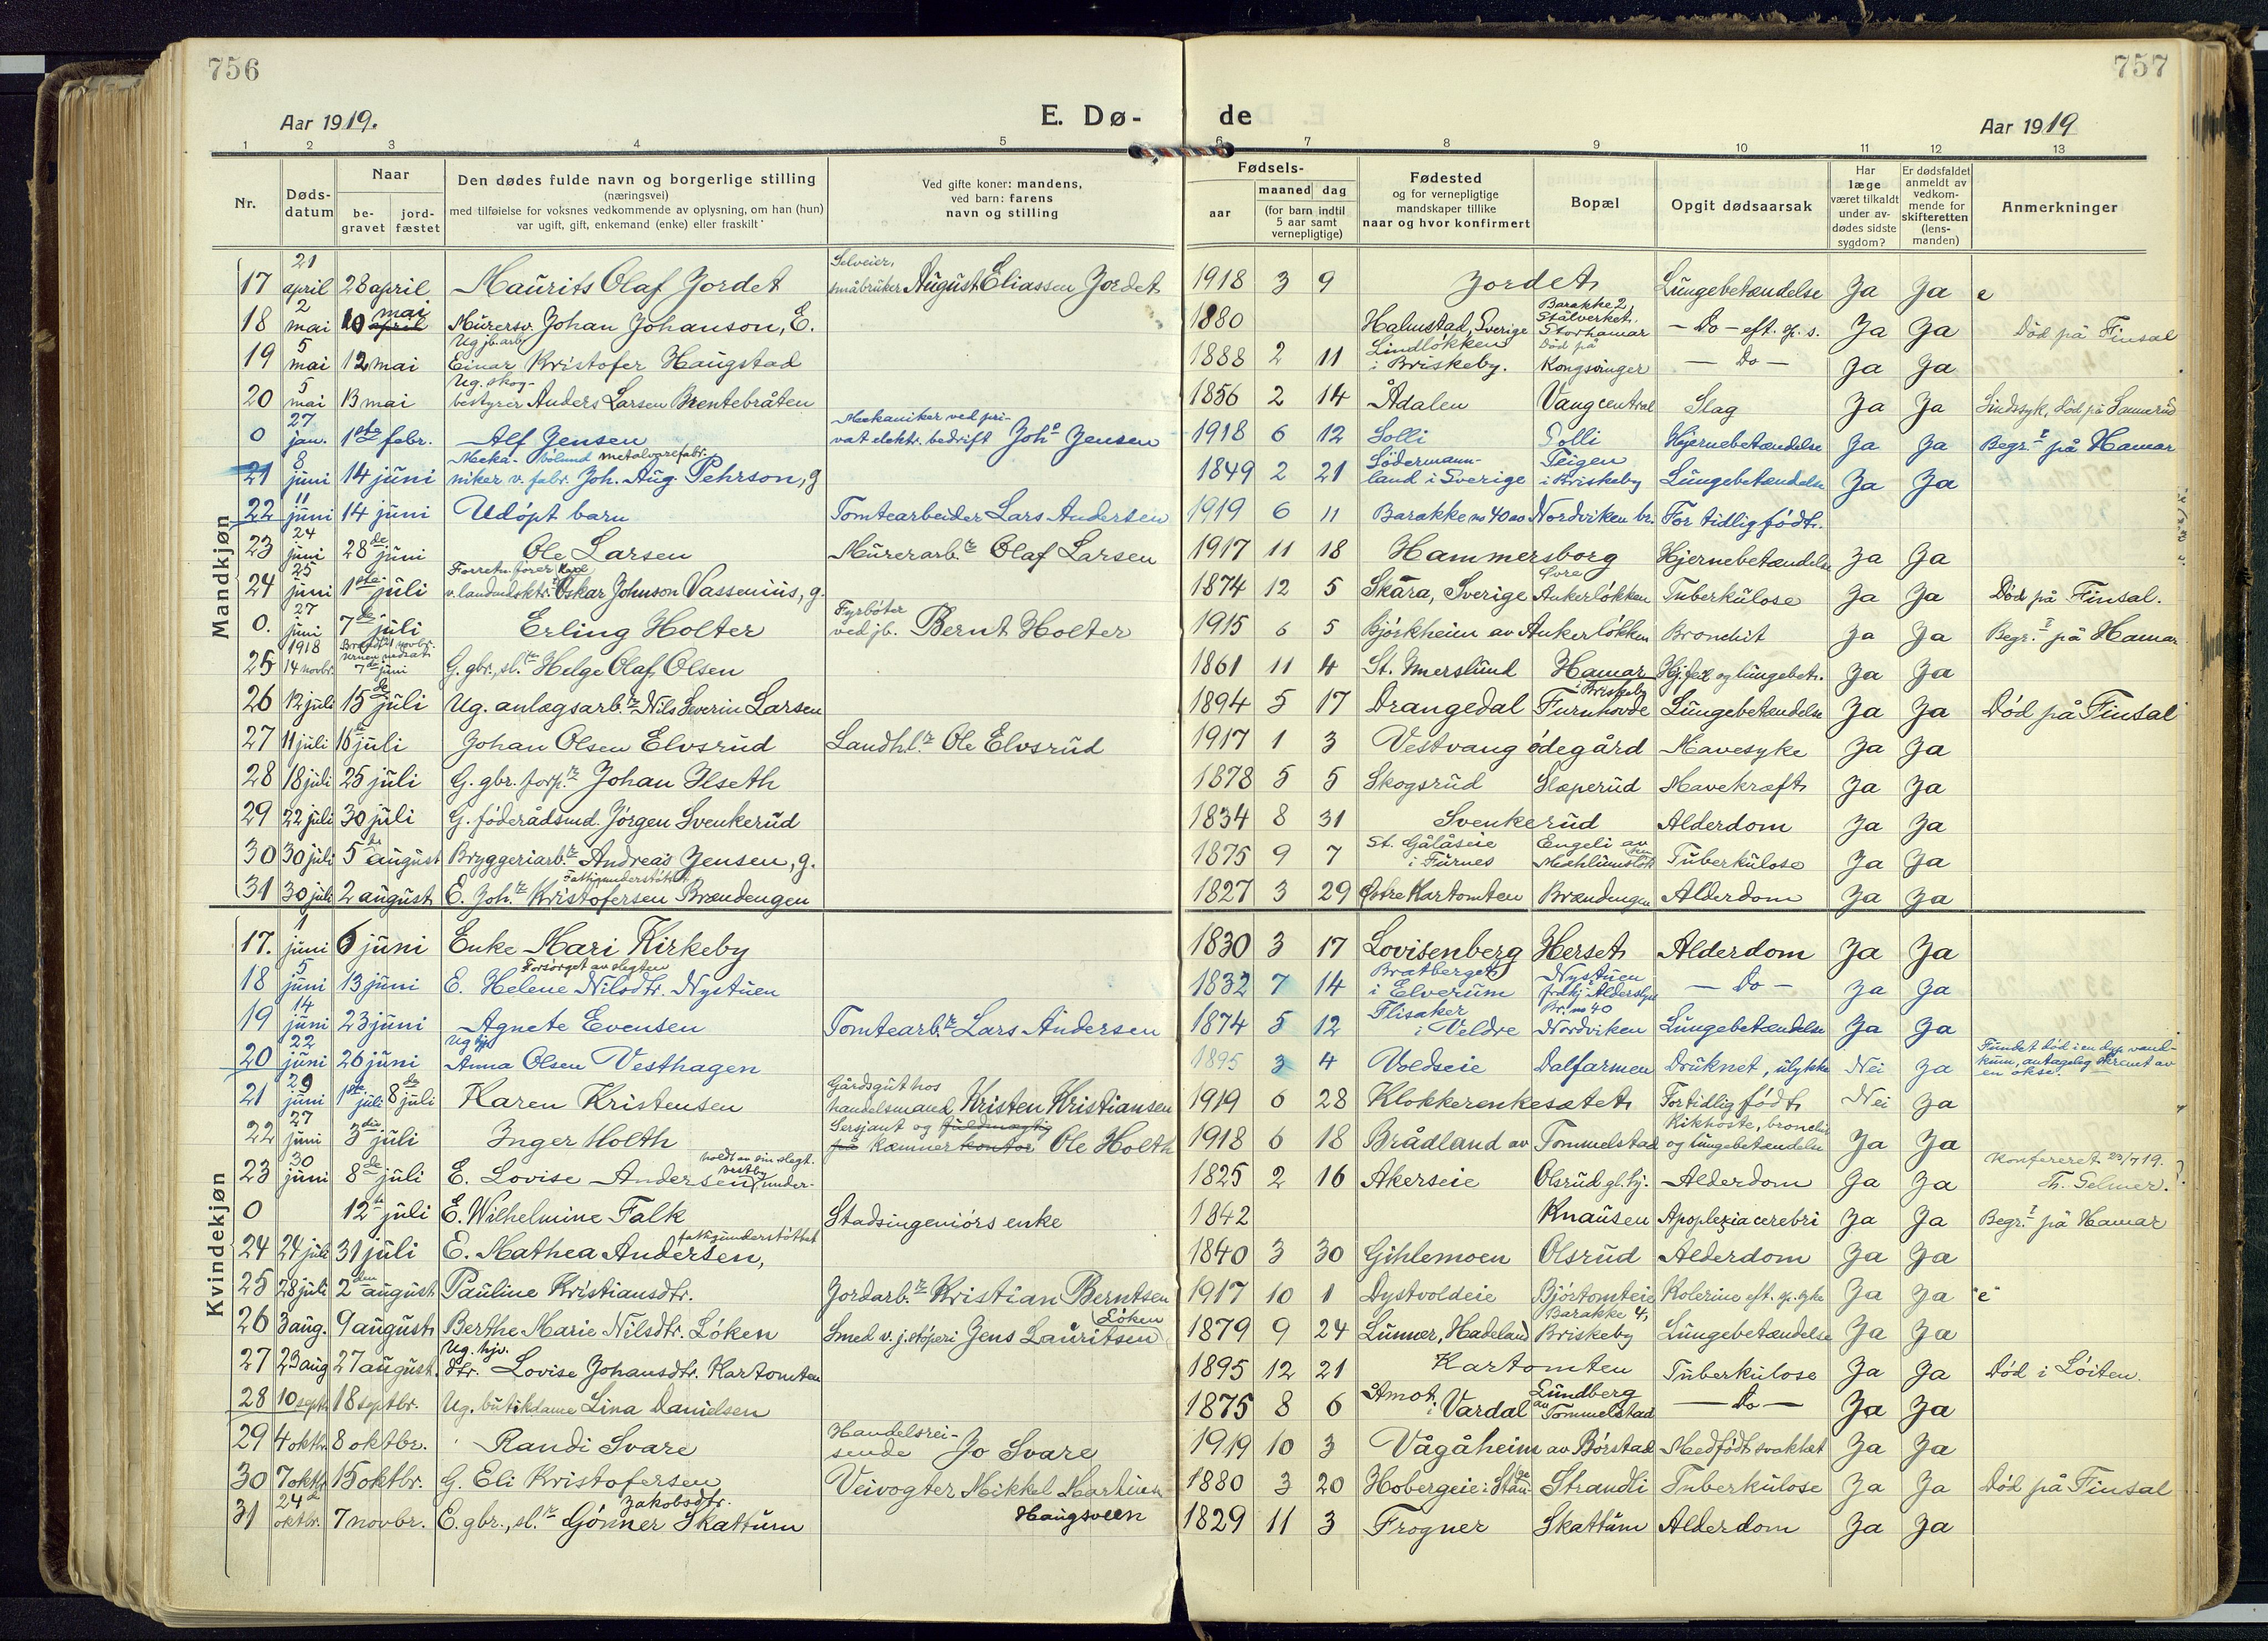 756
757
Aar 1919.
E. Dø-
de
Aar 1919
1 2 3 4 5 6 7 8 9 10 11 12 13
Nr.
Døds-
datum
Naar
be-
gravet
jord-
fæstet
Den dødes fulde navn og borgerlige stilling
(næringsvei)
med tilføielse for voksnes vedkommende av oplysning, om han (hun)
var ugift, gift, enkemand (enke) eller fraskilt
Ved gifte koner: mandens,
ved barn: farens
navn og stilling
Fødsels-
aar
maaned dag
(for barn indtil
5 aar samt
vernepligtige)
Fødested
og for vernepligtige
mandskaper tillike
naar og hvor konfirmert
Bopæl
Opgit dødsaarsak
Har
læge
været tilkaldt
under av-
dødes sidste
sygdom?
Er dødsfaldet
anmeldt av
vedkom-
mende for
skifteretten
(lens-
manden)
Anmerkninger
Mandkjøn
17 21 april 28 april Maurits Olaf Jordet Selveier, småbruker August Eliassen Jordet 1918 3 9 Jordet Lungebetændelse Ja Ja e
18 2 mai 10 april mai Murersv. Johan Johanson, E. 1880 Halmstad, Sverige Barakke 2, Stålverket, Storhamar - Do - eft. sp. s. Ja Ja Död på Finsal
19 5 mai 12 mai Ug jb. arb. Einar Kristofer Haugstad 1888 2 11 Lindløkken i Briskeby. Död på Kongsvinger - Do - Ja Ja
20 5 mai 13 mai Ug. skog- bestyrer Anders Larsen Brentebråten 1856 2 14 Ådalen Vang central Slag Ja Ja Sindssyk, Död på Sanerud
0 27 jan. 1ste febr. Alf Jensen Mekaniker ved pri- vat elektr. bedrift Johs Jensen 1918 6 12 Solli Solli Hjernebetændelse Ja Ja Begr. på Hamar
21 8 juni 14 juni Meka- niker v. fabr. metalvarefabr. Joh. Aug. Pehrson, g 1849 2 21 Södermann- land i Sverige Teigen i Briskeby Lungebetændelse Ja Ja
22 11 juni 14 juni Udöpt barn Tomtearbeider Lars Andersen 1919 6 11 Barakke no 40 av Nordviken br. For tidlig født.
23 24 juni 28de juni Ole Larsen Murerarb. Olaf Larsen 1917 11 18 Hammersborg Hjernebetændelse Ja Ja
24 25 juni 1ste juli Forretn. fører Karl Oskar Johnson Vassenius, g. 1874 12 5 Skara, Sverige Øvre Ankerløkken Tuberkulose Ja Ja Död på Finsal.
0. 27 juni 7de juli Erling Holter Fyrbøter ved jb. Bernt Holter 1915 6 5 Bjørkheim av Ankerløkken Bronchit Ja Ja Begr. på Hamar
25 1918 14 novbr. 7de juni G. gbr., sl. Helge Olaf Olsen 1861 11 4 St. Imerslund Hamar Hj. feil og lungebet. Ja Ja
26 12 juli 15de juli Ug. anlægsarb. Nils Severin Larsen 1894 5 17 Drangedal i Briskeby Furuhovde Lungebetændelse Ja Ja Död på Finsal
27 11 juli 16de juli Johan Olsen Elvsrud Landhl. Ole Elvsrud 1917 1 3 Vestvang ødegård Mavesyke Ja Ja
28 18 juli 25 juli G. gbr. forp. Johan Ilseth 1878 5 5 Skogsrud Slæperud Mavekræft Ja Ja
29 22 juli 30 juli G. föderådsmd. Jörgen Svenkerud 1834 8 31 Svenkerud Alderdom Ja Ja
30 30 juli 5te august Bryggeriarb. Andreas Jensen, g. 1875 9 7 St. Gålåseie i Furnes Engeli av Mæhlumsløkken Tuberkulose Ja Ja
31 30 juli 2 august E. Joh. Kristofersen Brændengen Fattigunderstöttet 1827 3 29 Østre Kartomten Brændengen Alderdom Ja Ja
Kvindekjøn
17. 1 juni 6 juni Enke Mari Kirkeby 1830 3 17 Lovisenberg Herset Alderdom Ja Ja
18 5 juni 13 juni Forsørget av slegten E. Helene Nilsdtr. Nystuen 1832 7 14 Bratberget i Elverum Nystuen - Do - Ja Ja
19 14 juni 23 juni Agnete Evensen Tomtearb. Lars Andersen 1874 5 12 Flisaker i Veldre Br. no 40 Nordviken Lungebetændelse Ja Ja
20 22 juni 26 juni Ug tj. Anna Olsen Vesthagen 1895 3 4 Voldseie Dalfarmen Druknet, ulykke Nei Ja Fundet död i en dyp vand- kum, antagelig skræmt av en okse.
21 29 juni 1ste juli 8de juli Karen Kristensen Gårdsgut hos handelsmand Kristen Kristiansen 1919 6 28 Klokkerenkesætet For tidlig født Nei Ja
22 27 juni 3die juli Inger Holth Sersjant og fuldmægtig på kæmner kontor Ole Holth 1918 6 18 Brådland av Tommelstad Kikhoste, bronchit og lungebetændelse Ja Ja
23 30 juni 8de juli E. Lovise Andersen holdt av sin slegt. 1825 2 16 Akerseie Olsrud gl. hj. Alderdom Ja Ja Konfereret 23/7 19. Th. Gelmer.
0 12te juli E. Wilhelmine Falk Stadsingeniörs enke 1842 Knausen Apoplexia cerebri Ja Ja Begr. på Hamar
24 24 juli 31 juli E. Mathea Andersen, fattigunderstöttet 1840 3 30 Gihlemoen Olsrud Alderdom Ja Ja
25 28 juli 2den august Pauline Kristiansdtr. Jordarb. Kristian Berntsen 1917 10 1 Dystvoldeie Bjørtomteie Kolerine eft. sp. syke Ja Ja "e"
26 3 aug. 9 august Berthe Marie Nilsdtr. Löken Smed v. j. støperi Jens Lauritsen Löken 1879 9 24 Lunner, Hadeland Barakke 4, Briskeby Lungebetændelse Ja Ja
27 23 aug 27 august Ug. hjv. dtr. Lovise Johansdtr. Kartomten 1895 12 21 Kartomten Tuberkulose Ja Ja Död i Löiten.
28 10 septbr 18 septbr. Ug. butikdame Lina Danielsen 1875 8 6 Åmot i Vardal Lundberg av Tommelstad - Do - Ja Ja
29 4 oktbr. 8 oktbr. Randi Svare Handelsrei- sende Jo Svare 1919 10 3 Vågåheim av Börstad Medfödt svakhet Ja Ja
30 7 oktbr 15 oktbr. G. Eli Kristofersen Veivogter Mikkel Martinsen Haugsveen 1880 3 20 Hobergeie i Stange Strandli Tuberkulose Ja Ja Död på Finsal
31 24de oktbr. 7 novbr. E. gbr., sl. Gönner Jakobsdtr. Skattum 1829 11 3 Frogner Skattum Alderdom Ja Ja